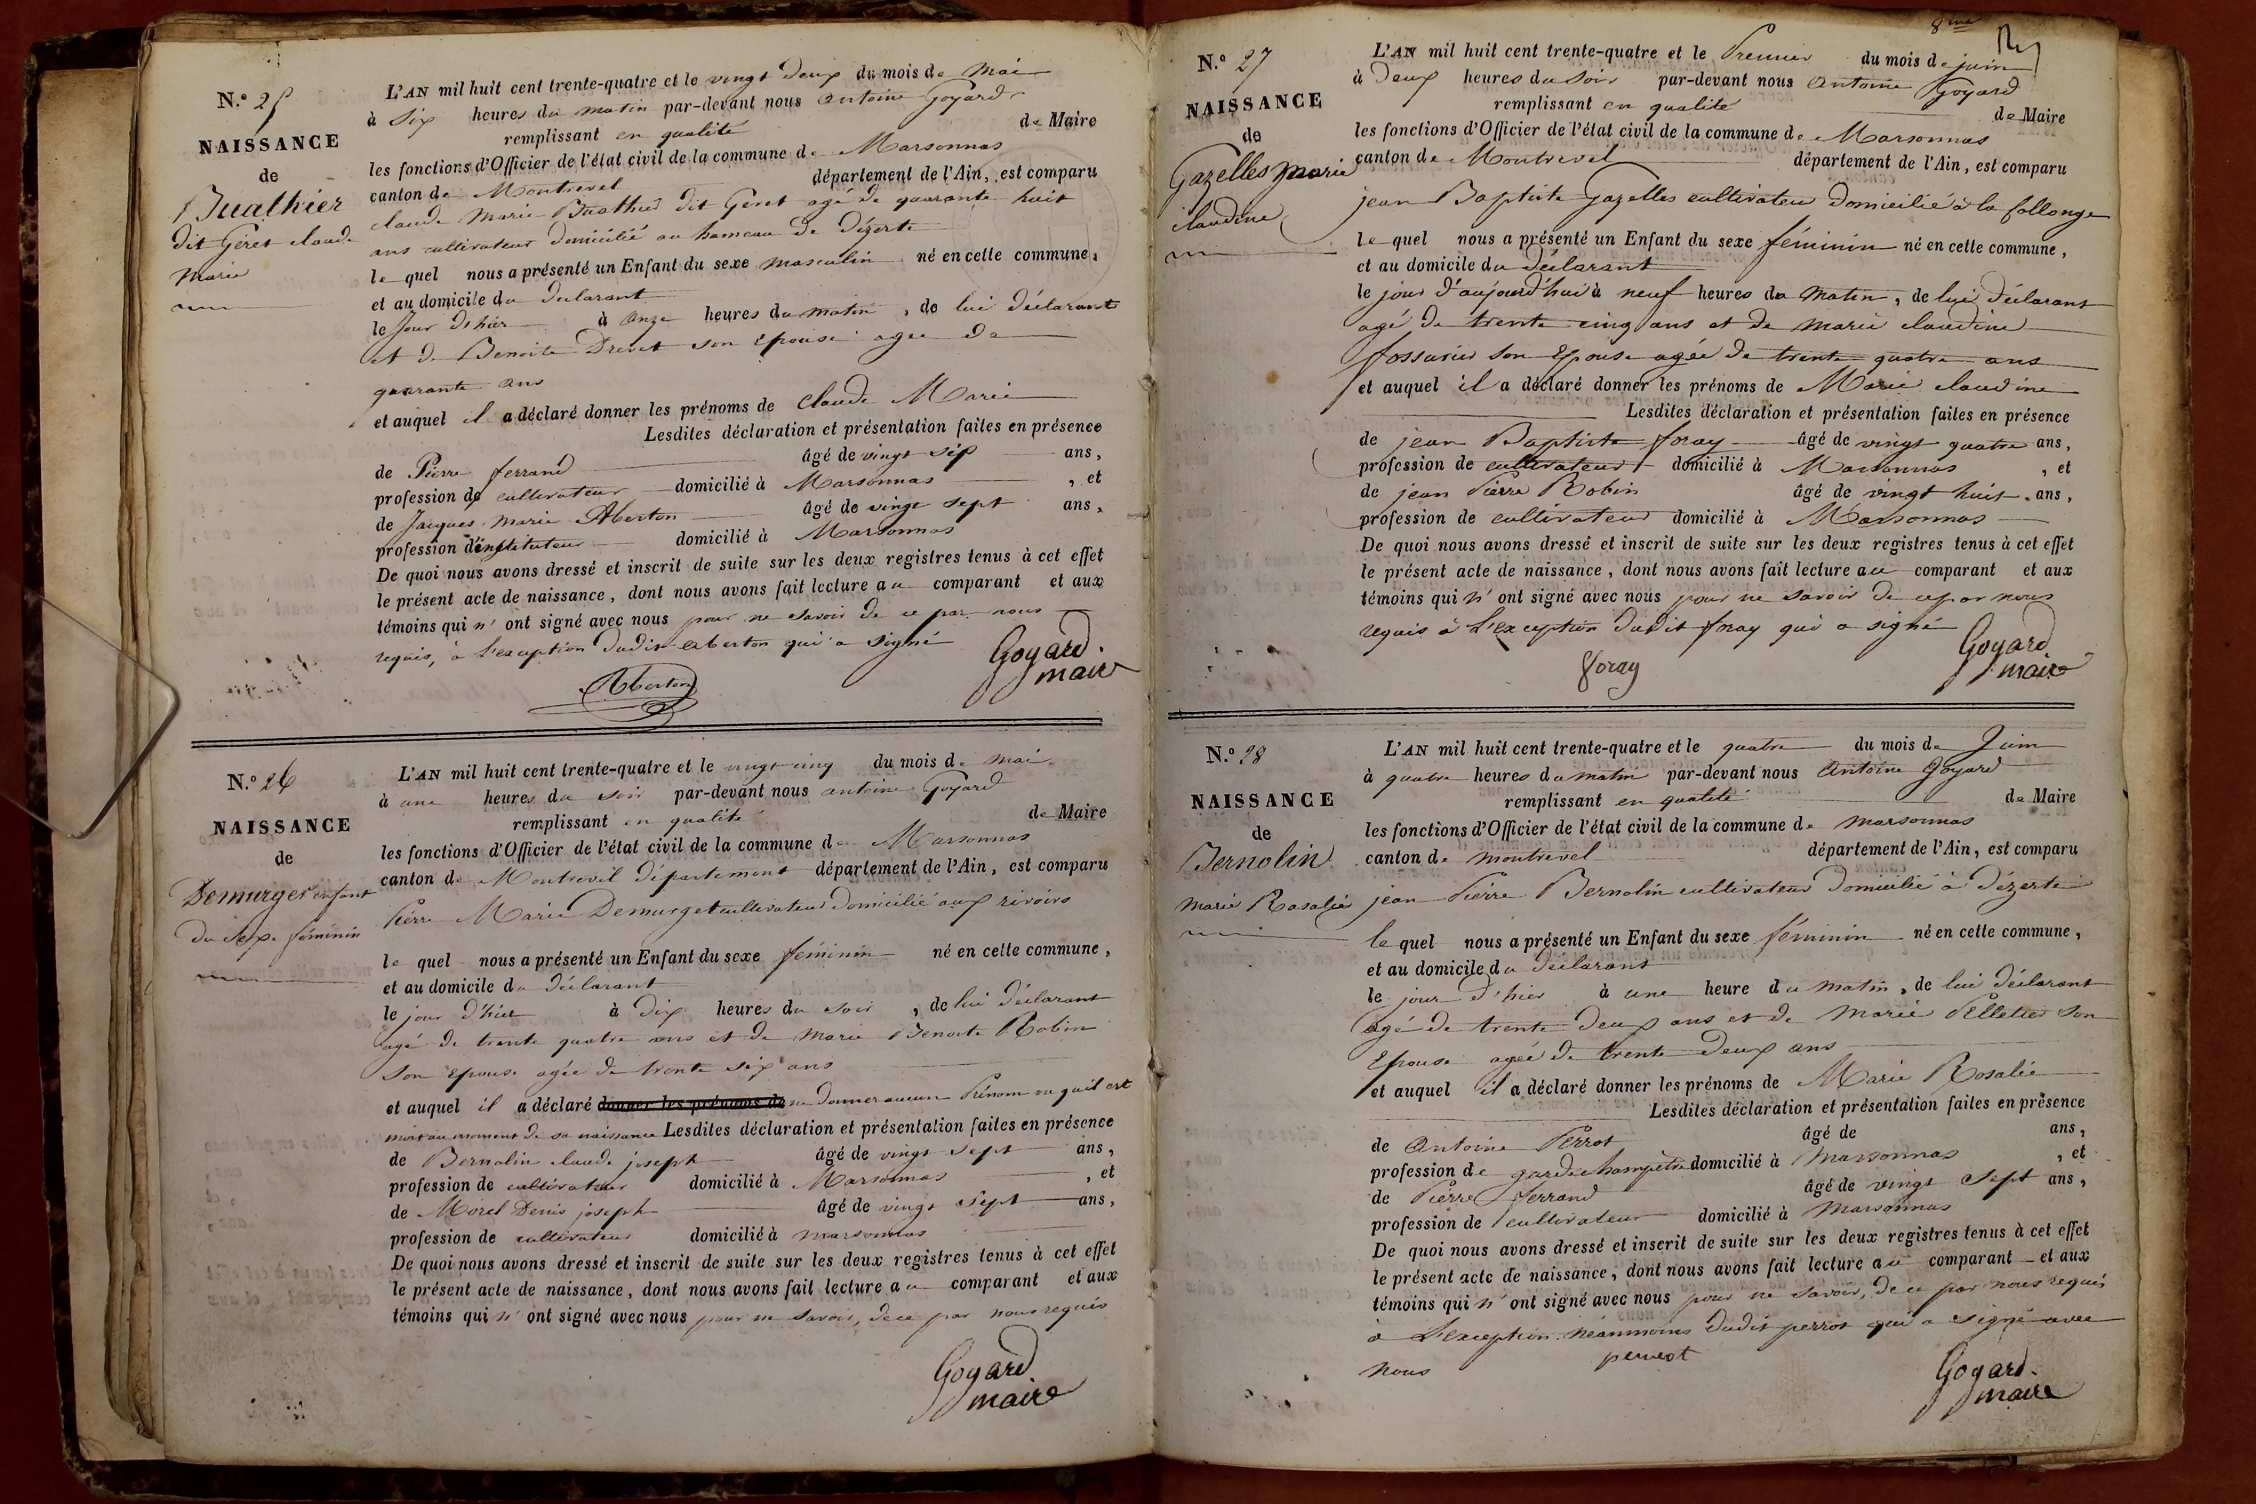 N.° 25
NAISSANCE
de
Buathier
dit Géret claude
marie
L'AN mil huit cent trente-quatre et le vingt deux du mois de Mai
à six heures du matin par-devant nous antoine Goyard
remplissant en qualité de Maire
les fonctions d'Officier de l'état civil de la commune de Marsonnas
canton de Montrevel département de l'Ain, est comparu
claude Marie Buathier dit Géret agé de quarante huit
ans cultivateur domicilié au hameau de Dézerte
le quel nous a présenté un Enfant du sexe masculin né en cette commune,
et au domicile du déclarant
le Jour d'hier à onze heures du matin, de lui déclarant
et de Benoite Drevet son épouse agée de
quarante ans
et auquel il a déclaré donner les prénoms de claude Marie
Lesdites déclaration et présentation faites en présence
de Pierre ferrand âgé de vingt six ans,
profession de cultivateur domicilié à Marsonnas, et
de Jacques Marie Aberton âgé de vingt sept ans,
profession d'instituteur domicilié à Marsonnas
De quoi nous avons dressé et inscrit de suite sur les deux registres tenus à cet effet
le présent acte de naissance, dont nous avons fait lecture au comparant et aux
témoins qui n'ont signé avec nous pour ne savoir de ce par nous
requis, à l'exception dudit aberton qui a signé
Goyard
maire
Aberton
N.° 26
NAISSANCE
de
Demurger enfant
du sexe féminin
L'AN mil huit cent trente-quatre et le vingt cinq du mois de mai
à une heures du soir par-devant nous antoine Goyard
remplissant en qualité de Maire
les fonctions d'Officier de l'état civil de la commune de Marsonnas
canton de Montrevel département département de l'Ain, est comparu
Pierre Marie Demurget cultivateur domicilié aux rivoirs
le quel nous a présenté un Enfant du sexe féminin né en cette commune,
et au domicile du déclarant
le jour d'hier à dix heures du soir, de lui déclarant
agé de trente quatre ans et de Marie Benoite Robin
son épouse agée de trente six ans
et auquel il a déclaré donner les prénoms de ne donner aucun Prénom vu qu'il est
mort au moment de sa naissance Lesdites déclaration et présentation faites en présence
de Bernolin claude joseph âgé de vingt sept ans,
profession de cultivateur domicilié à Marsonnas, et
de Morel Denis joseph âgé de vingt sept ans,
profession de cultivateur domicilié à marsonnas
De quoi nous avons dressé et inscrit de suite sur les deux registres tenus à cet effet
le présent acte de naissance, dont nous avons fait lecture au comparant et aux
témoins qui n'ont signé avec nous pour ne savoir, de ce par nous requis
Goyard
maire
8me
N.° 27
NAISSANCE
de
Gazelles marie
claudine
L'AN mil huit cent trente-quatre et le Premier du mois de juin
à Deux heures du soir par-devant nous antoine Goyard
remplissant en qualité de Maire
les fonctions d'Officier de l'état civil de la commune de Marsonnas
canton de Montrevel département de l'Ain, est comparu
jean Baptiste Gazelles cultivateur domicilié à la follonge
le quel nous a présenté un Enfant du sexe féminin né en cette commune,
et au domicile du déclarant
le jour d'aujourd'hui à neuf heures du matin, de lui déclarant
agé de trente cinq ans et de marie claudine
fossurier son Epouse agée de trente quatre ans
et auquel il a déclaré donner les prénoms de Marie claudine
Lesdites déclaration et présentation faites en présence
de jean Baptiste foray âgé de vingt quatre ans,
profession de cultivateur domicilié à Marsonnas, et
de jean Pierre Robin âgé de vingt huit ans,
profession de cultivateur domicilié à Marsonnas
De quoi nous avons dressé et inscrit de suite sur les deux registres tenus à cet effet
le présent acte de naissance, dont nous avons fait lecture au comparant et aux
témoins qui n'ont signé avec nous pour ne savoir de ce par nous
requis à l'exception dudit foray qui a signé
Goyard
maire
foray
N.° 28
NAISSANCE
de
Bernolin
marie Rosalie
L'AN mil huit cent trente-quatre et le quatre du mois de Juin
à quatre heures du matin par-devant nous antoine Goyard
remplissant en qualité de Maire
les fonctions d'Officier de l'état civil de la commune de marsonnas
canton de montrevel département de l'Ain, est comparu
jean Pierre Bernolin cultivateur domicilié à dézerte
le quel nous a présenté un Enfant du sexe féminin né en cette commune,
et au domicile du déclarant
le jour d'hier à une heure du matin, de lui déclarant
agé de trente deux ans et de Marie Pelletier son
Epouse agée de trente deux ans
et auquel il a déclaré donner les prénoms de Marie Rosalie
Lesdites déclaration et présentation faites en présence
de antoine Perrot âgé de ans,
profession de garde champêtre domicilié à marsonnas, et
de Pierre ferrand âgé de vingt sept ans,
profession de cultivateur domicilié à marsonnas
De quoi nous avons dressé et inscrit de suite sur les deux registres tenus à cet effet
le présent acte de naissance, dont nous avons fait lecture au comparant et aux
témoins qui n'ont signé avec nous pour ne savoir, de ce par nous requis
à l'exception néanmoins dudit perrot qui a signé avec
nous
perrot
Goyard
maire